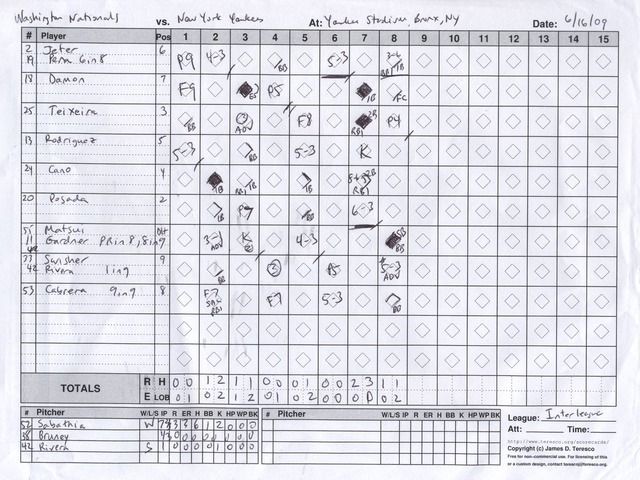 Washington Nationals vs. New York Yankees At: Yankee Stadium, Bronx, NY Date: 6/16/09
# Player Pos 1 2 3 4 5 6 7 8 9 10 11 12 13 14 15
2 Jeter 6 F9 4-3 BB 5-3
19 Pena 6in8
18 Damon 7 F9 P5 1B FC
25 Teixeira 3 BB ADV F8 2B RBI P4
13 Rodriguez 5 5-3 BB 5-3 K
24 Cano 4 1B 1B 1B RBI
20 Posada 2 1B BB 6-3
55 Matsui DH 3-1 ADV K 4-3 BB
11 Gardner PRin8, 8in9
33 Swisher 9 BB 5-3 ADV
42 Rivera 1in9
53 Cabrera 9in9 8 F7 SAC RBI F7 5-3 BB
TOTALS
R H 0 0 1 2 1 1 0 0 0 1 0 0 2 3 1 1
E LOB 0 1 0 2 1 2 0 1 0 2 0 0 0 0 0 2
# Pitcher W/L/S IP R ER H BB K HP WP BK # Pitcher W/L/S IP R ER H BB K HP WP BK
52 Sabathia W 7 3 3 6 1 2 0 0 0
38 Bruney
42 Rivera S 1 0 0 0 0 1 0 0 0
League: Interleague
Att: Time:
http://www.teresco.org/scorecards/
Copyright (c) James D. Teresco
Free for non-commercial use. For licensing of this
or a custom design, contact teresco@teresco.org.